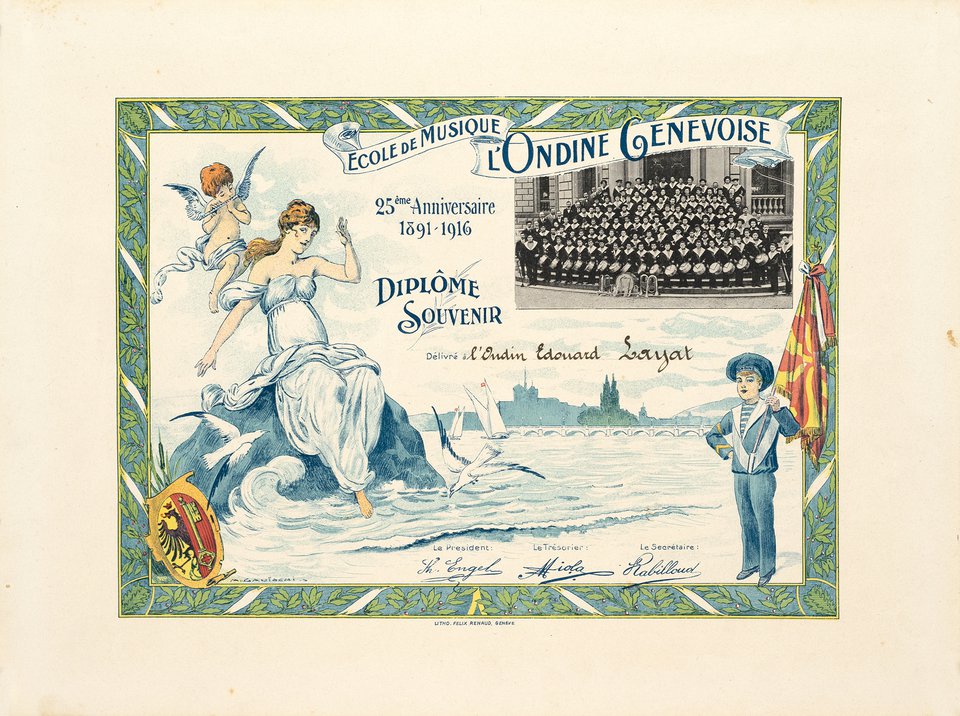 ÉCOLE DE MUSIQUE
L'ONDINE GENEVOISE
25ème Anniversaire
1891-1916
DIPLÔME
SOUVENIR
Délivré à l'Ondin Edouard Layat
Le Président:
Le Trésorier:
Le Secrétaire:
Th. Engel
Miola
Rabilloud
LITHO. FELIX RENAUD, GENÈVE